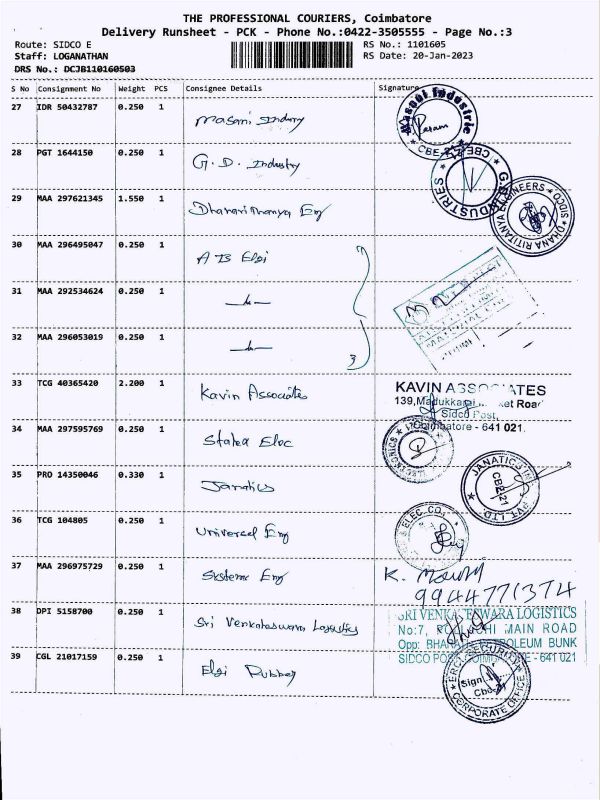 THE PROFESSIONAL COURIERS, Coimbatore
Delivery Runsheet - PCK - Phone No.:0422-3505555 - Page No.:3
Route: SIDCO E
RS No.: 1101605
Staff: LOGANATHAN
RS Date: 20-Jan-2023
DRS No.: DCJB110160503
S No Consignment No Weight PCS Consignee Details Signature
27 IDR 50432787 0.250 1 Masani Industry
28 PGT 1644150 0.250 1 G.D. Industry
G.D. INDUSTRIES CBE
29 MAA 297621345 1.550 1 Dhanarithanya Eng
30 MAA 296495047 0.250 1 A B Elgi
31 MAA 292534624 0.250 1
32 MAA 296053019 0.250 1
33 TCG 40365420 2.200 1 Kavin Associates
KAVIN ASSOCIATES
139, Road
Sidco Post,
Coimbatore - 641 021.
34 MAA 297595769 0.250 1 Elec
35 PRO 14350046 0.330 1 Janatics
JANATICS PVT. LTD. CB21
36 TCG 104805 0.250 1 Universal Eng
ELEC. CO.,
37 MAA 296975729 0.250 1 Systems Eng
K.
9944771374
38 DPI 5158700 0.250 1 Sri Venkateswara Logistics
SRI VENKATESWARA LOGISTICS
No:7, MAIN ROAD
Opp: PETROLEUM BUNK
SIDCO POST, COIMBATORE - 641 021
39 CGL 21017159 0.250 1 Elgi Rubber
SECURITY
Sign
CORPORATE OFFICE